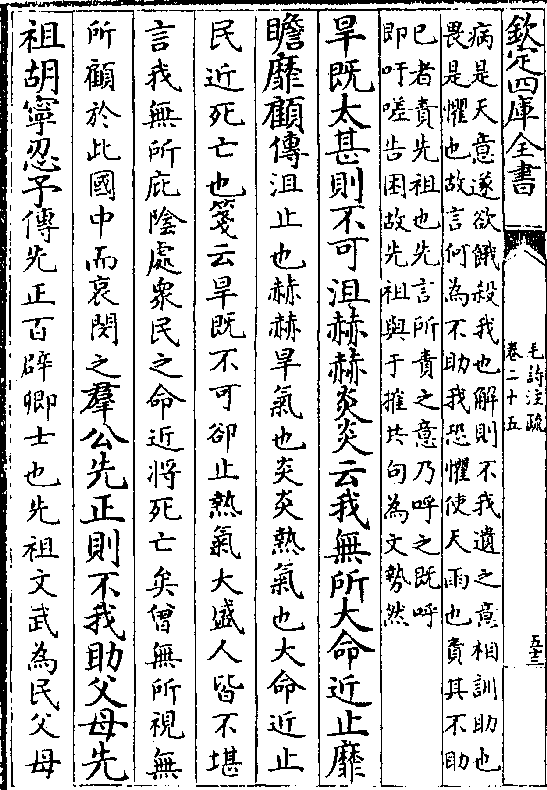 欽定四庫全書
毛詩注疏
卷二十五
五十三
病是天意遂欲餓殺我也解則不我遺之意相訓助也
畏是懼也故言何為不助我恐懼使天雨也責其不助
已者責先祖也先言所責之意乃呼之既呼
即吁嗟告困故先祖與于摧共句為文勢然
旱既太甚則不可沮赫赫炎炎云我無所大命近止靡
瞻靡顧傳沮止也赫赫旱氣也炎炎熱氣也大命近止
民近死亡也箋云旱既不可卻止熱氣大盛人皆不堪
言我無所庇陰處衆民之命近將死亡矣曾無所視無
所顧於此國中而哀閔之羣公先正則不我助父母先
祖胡寧忍予傳先正百辟卿士也先祖文武為民父母